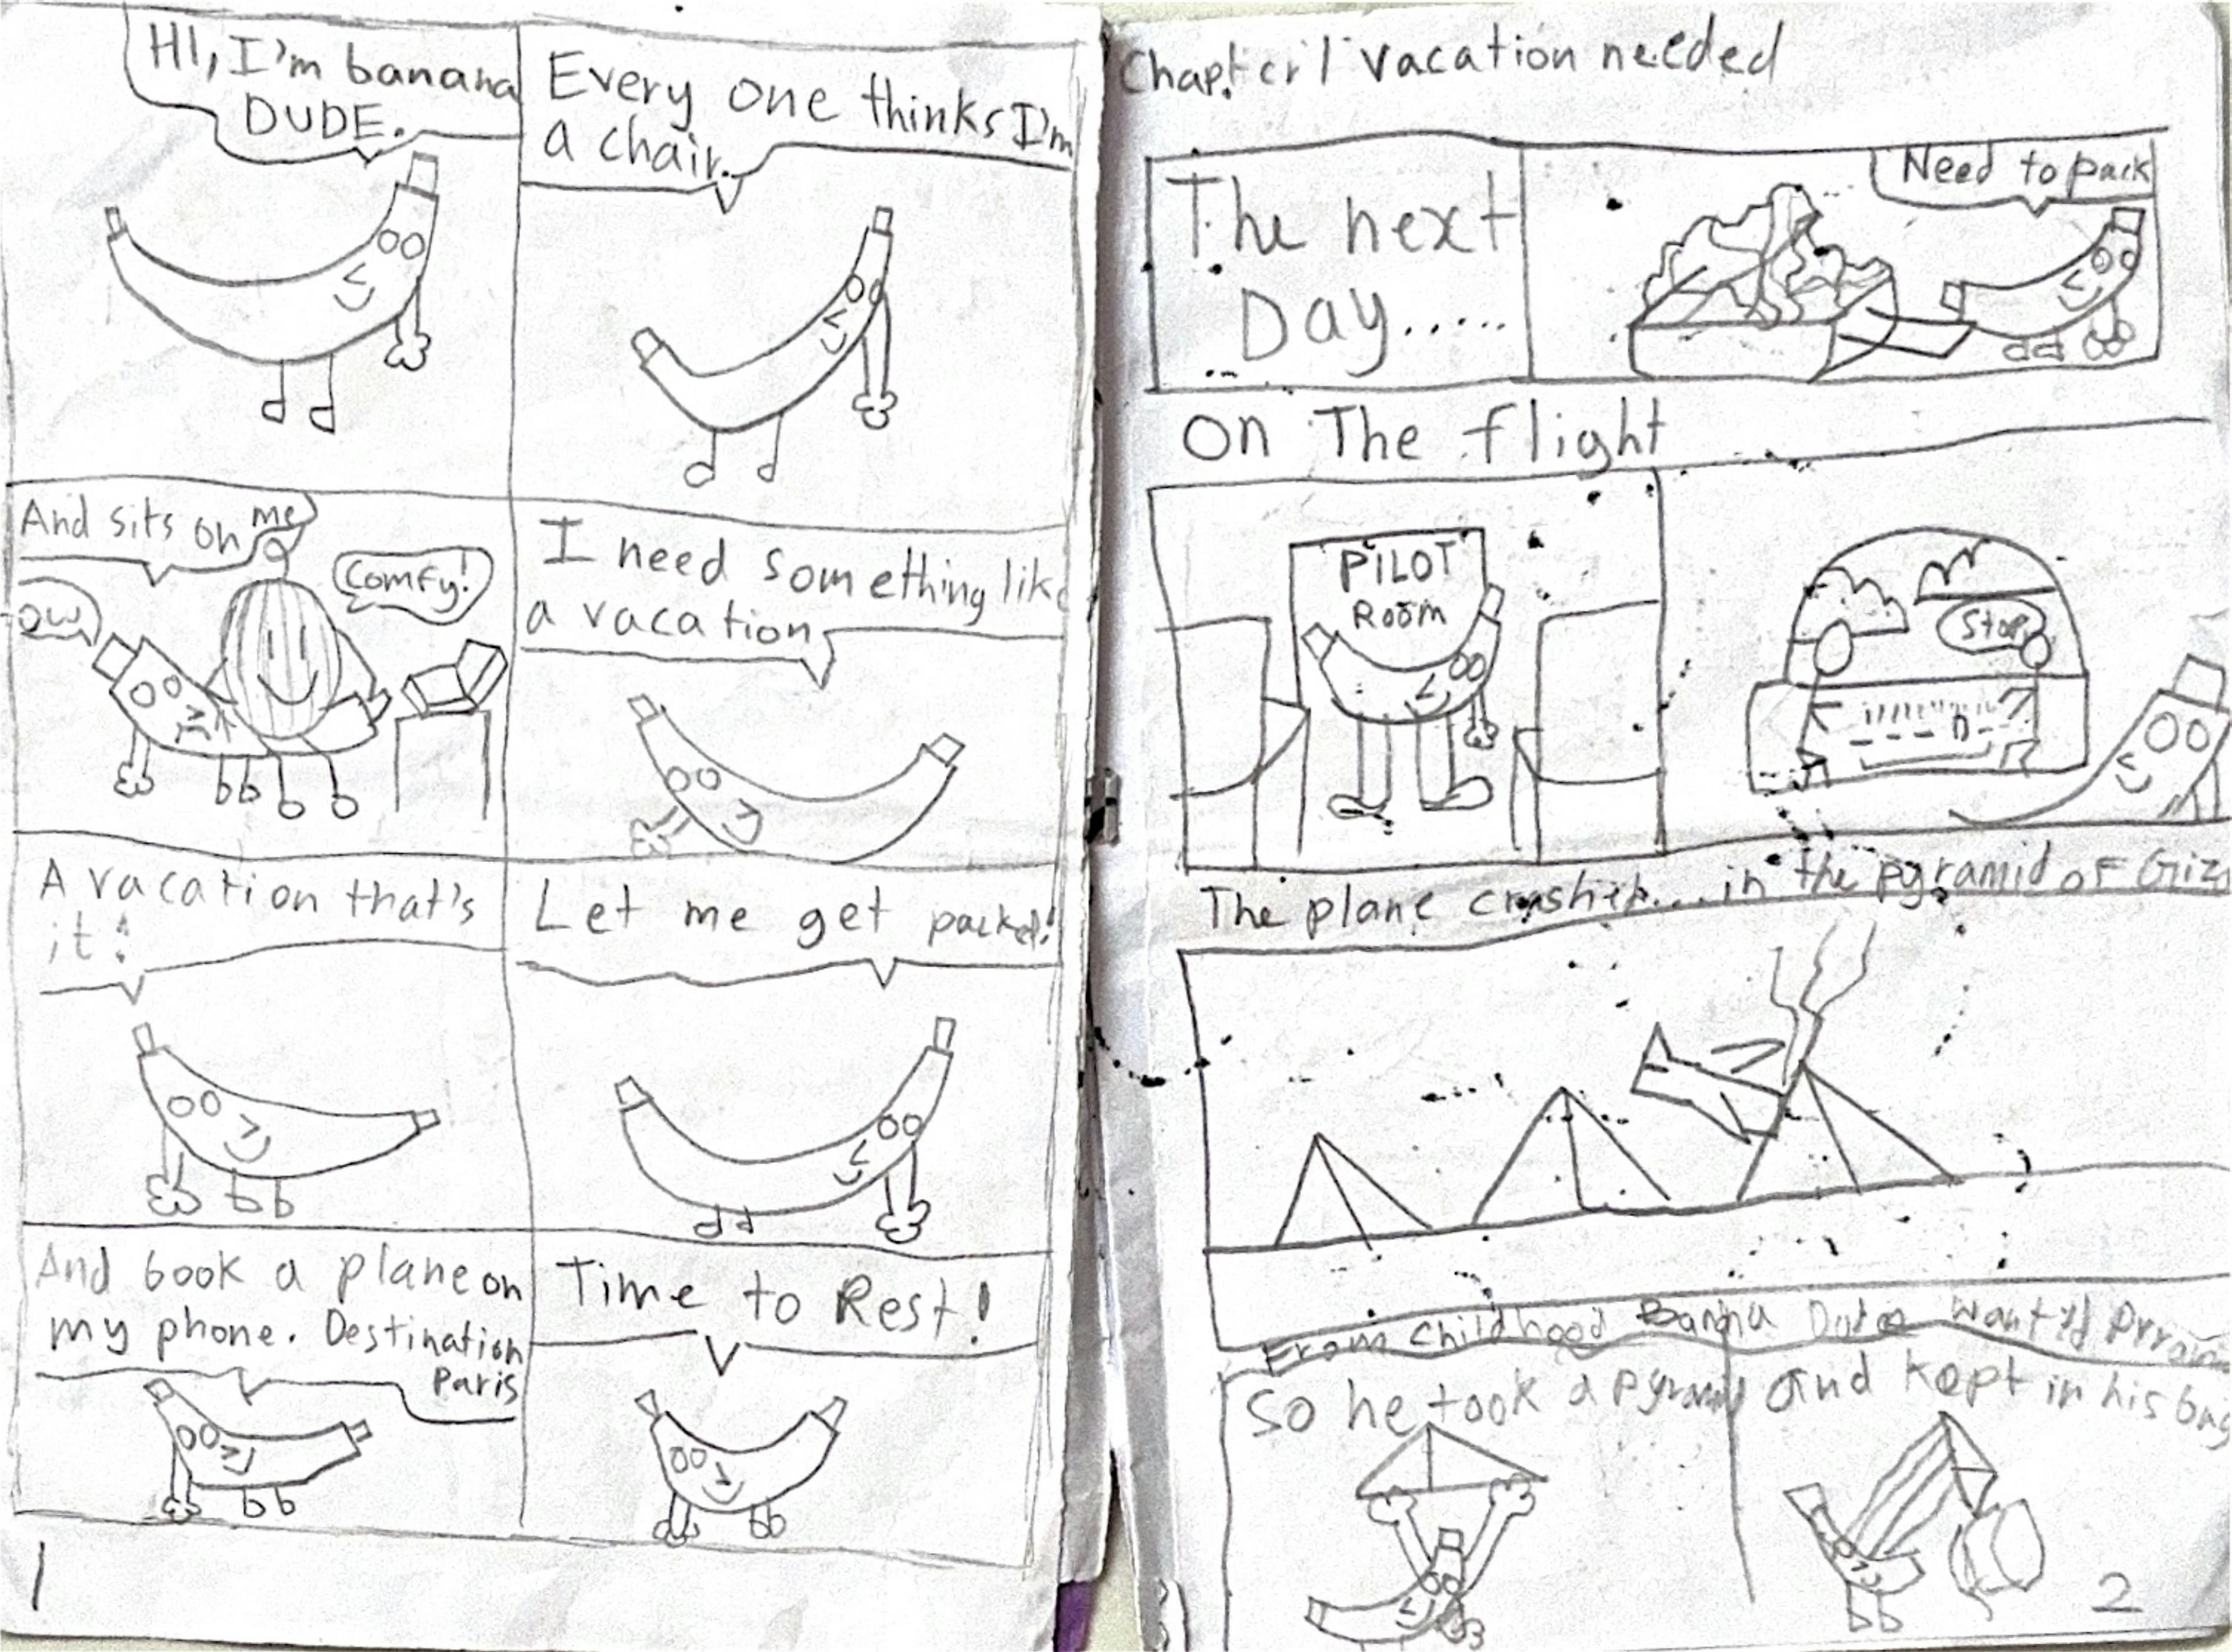 HI, I'm banana
DUDE.
Every one thinks I'm
a chair.
And sits on me
ow
Comfy!
I need something like
a vacation
A vacation that's
it!
Let me get packed!
And book a plane on
my phone. Destination
Paris
Time to Rest!
1
Chapter 1 vacation needed
The next
Day.....
Need to pack
On The flight
PILOT
ROOM
Stop
The plane crashed...in the pyramid of Giz
From childhood Banana Dude wanted
So he took a pyramid and kept in his bag
2